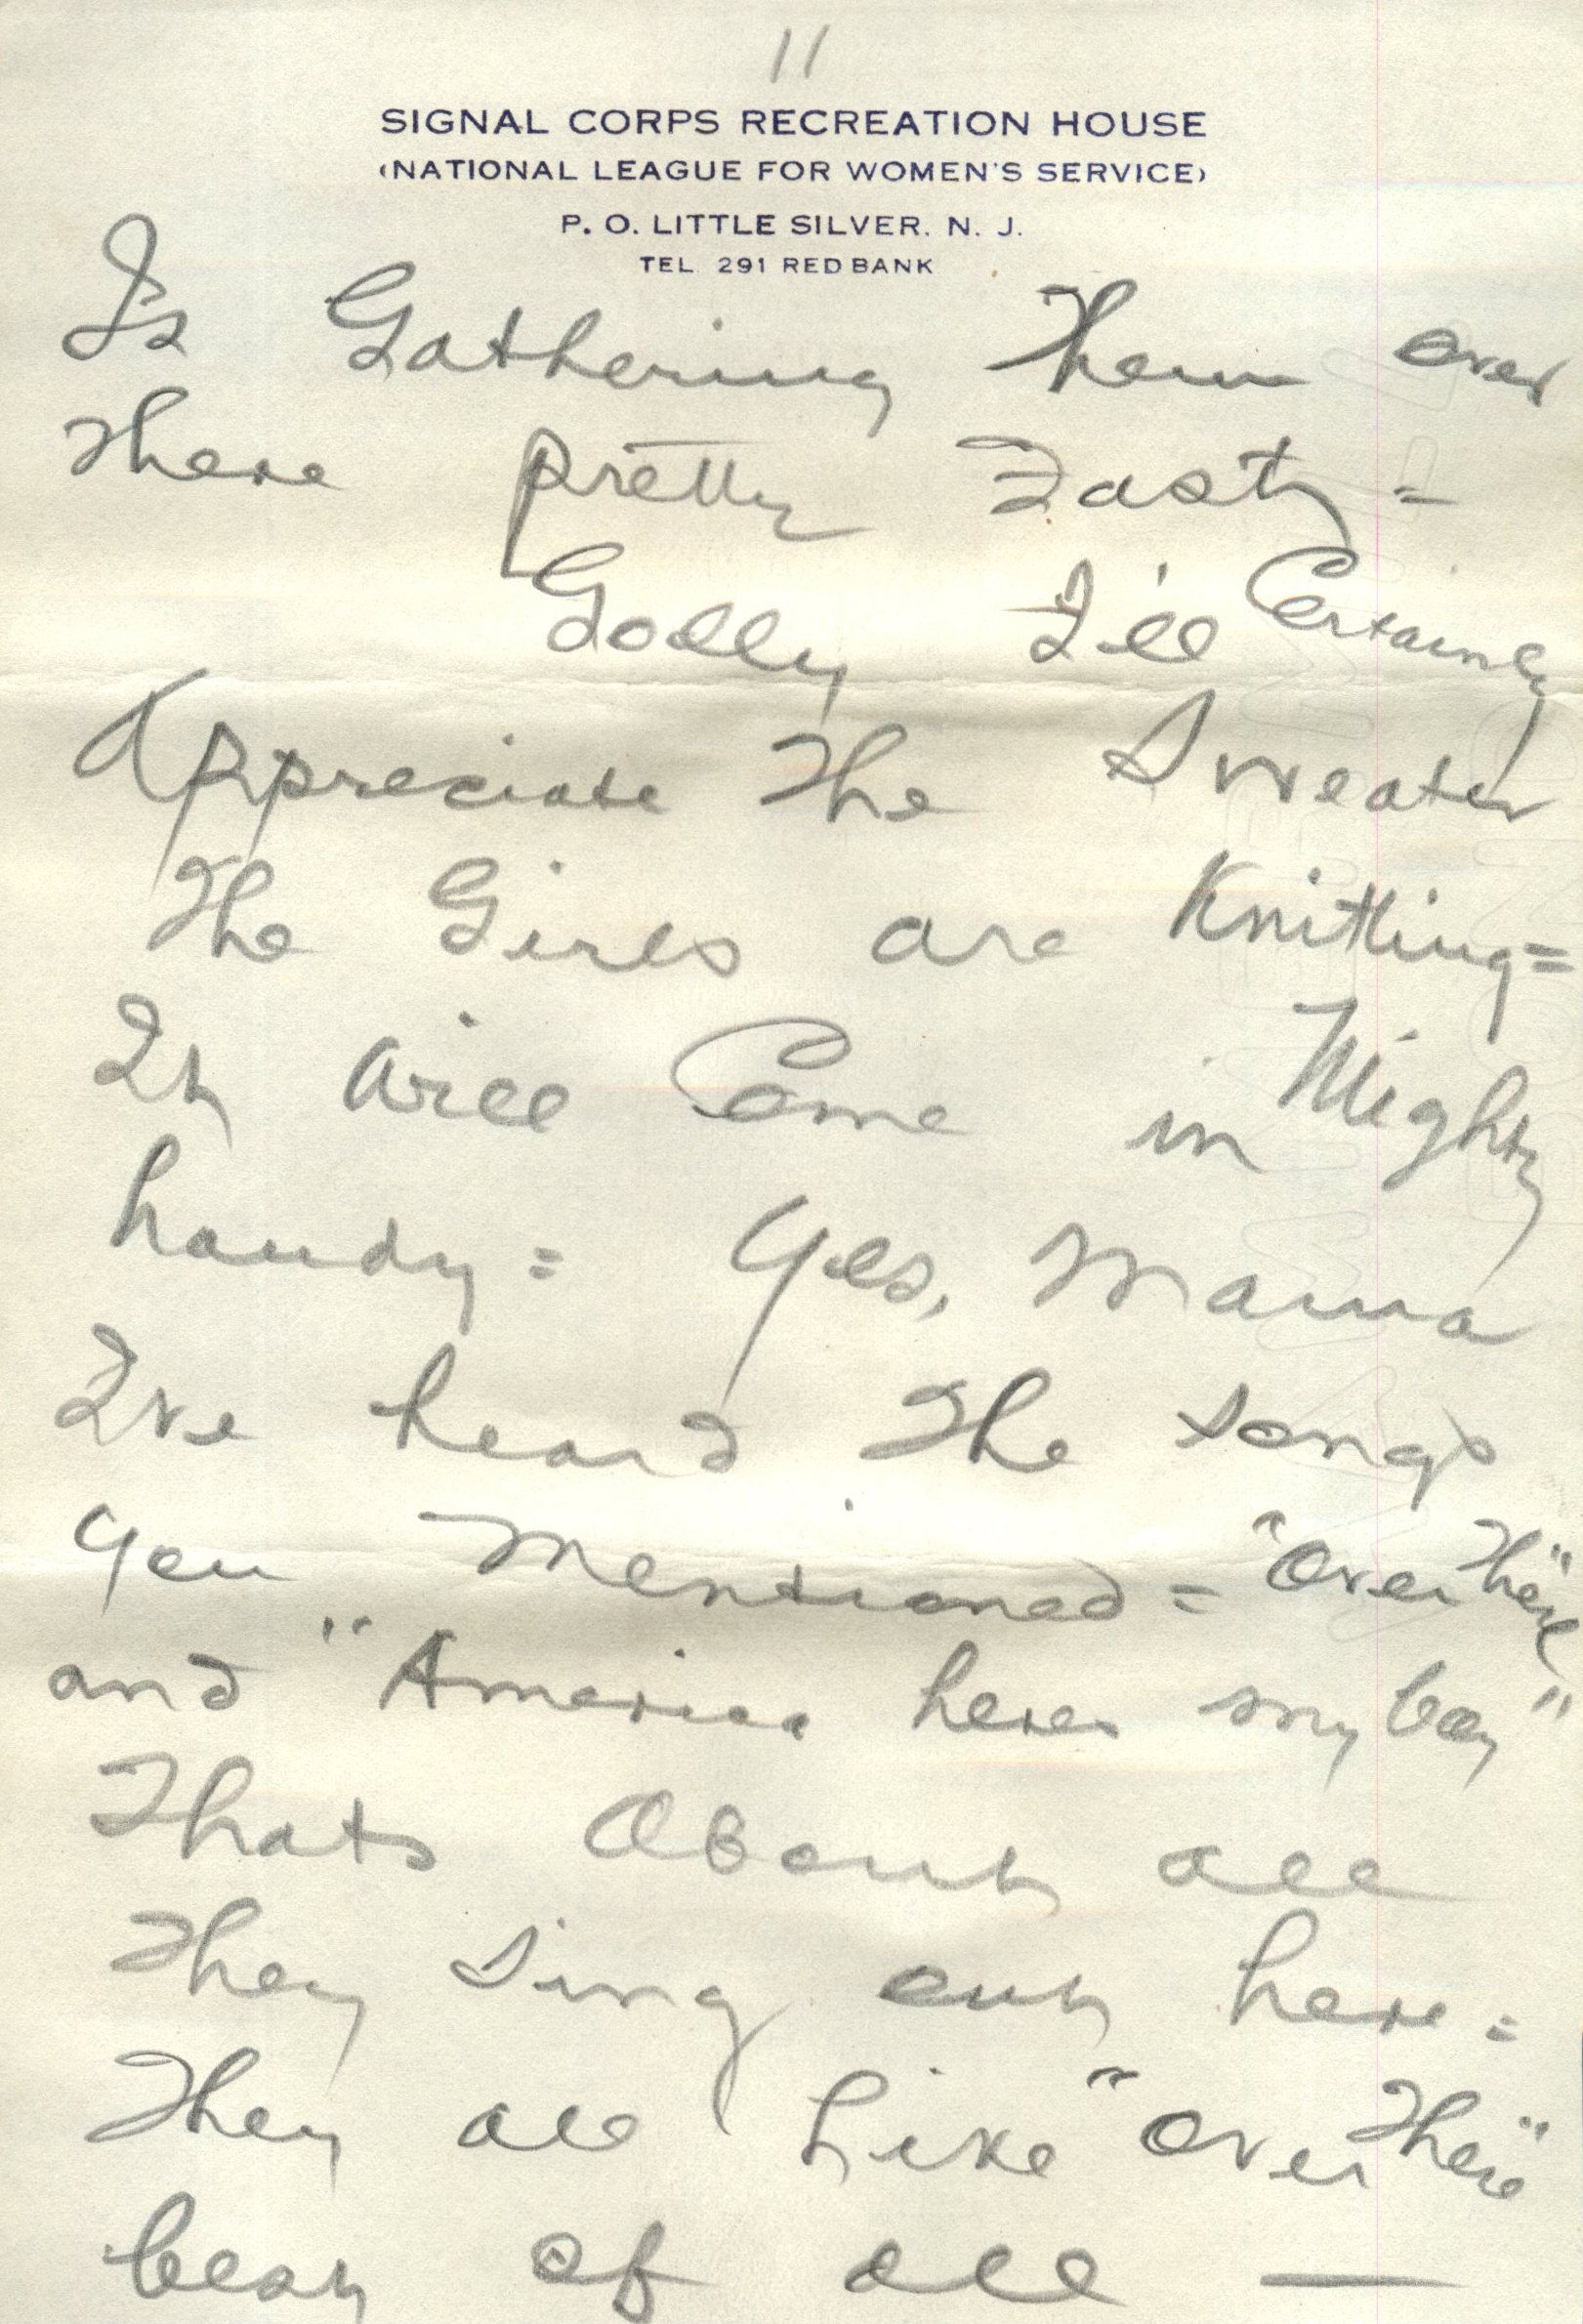 11
SIGNAL CORPS RECREATION HOUSE
(NATIONAL LEAGUE FOR WOMEN'S SERVICE)
P. O. LITTLE SILVER. N. J.
TEL. 291 RED BANK
Is Gathering Them over
There pretty Fast =
Golly I'll Certainly
Appreciate The Sweater
The Girls are Knitting =
It will Come in Mighty
handy = Yes, Mama
I've heard The songs
you Mentioned = "Over There"
and "America heres my boy"
Thats About all
They Sing out here =
They all Like "Over There"
best of all —